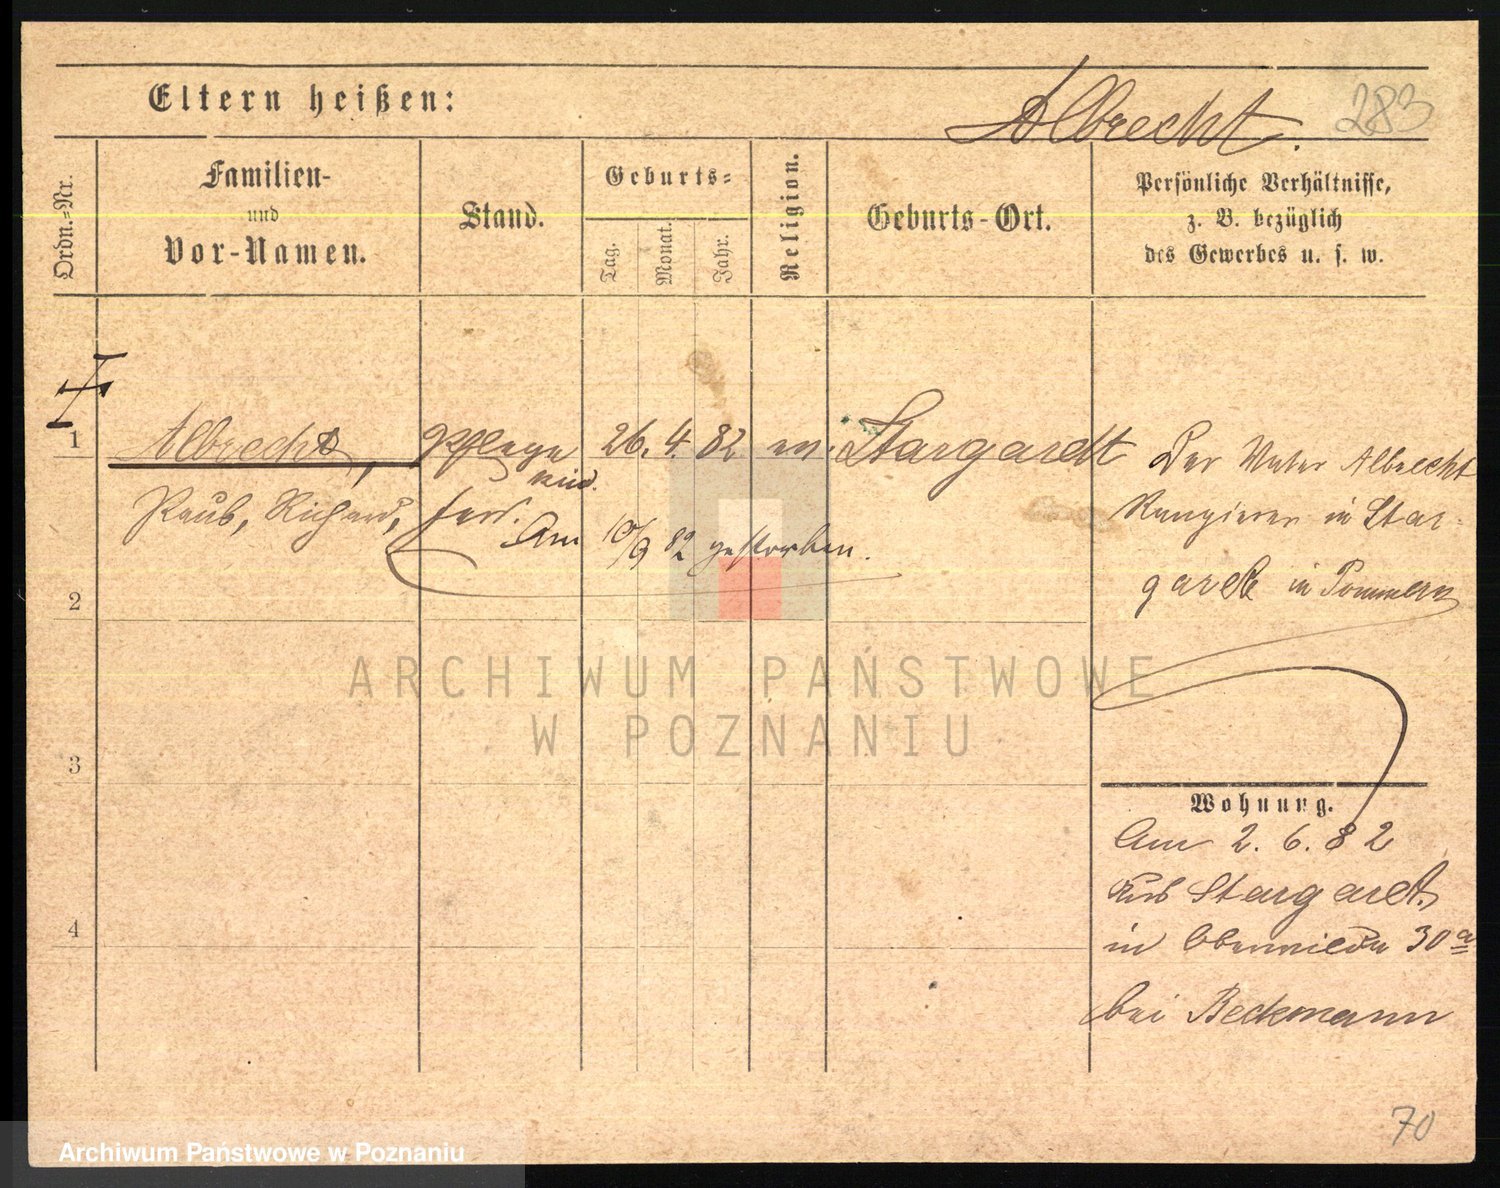 Eltern heißen:
Albrecht.
283
Ordn.-Nr.
Familien-
und
Vor-Namen.
Stand.
Geburts-
Tag.
Monat.
Jahr.
Religion.
Geburts-Ort.
Persönliche Verhältnisse,
z. B. bezüglich
des Gewerbes u. s. w.
1
Albrecht, Pflege 26. 4. 82 ev. Stargardt
kind.
Paul, Richard, Ferd.
Am 10/9 82 gestorben.
Der Vater Albrecht
Rangierer in Star-
gardt in Pommern
2
3
4
ARCHIWUM PAŃSTWOWE
W POZNANIU
Wohnung.
Am 2. 6. 82
aus Stargardt
in Oberwilda 30a
bei Beckmann
70
Archiwum Państwowe w Poznaniu